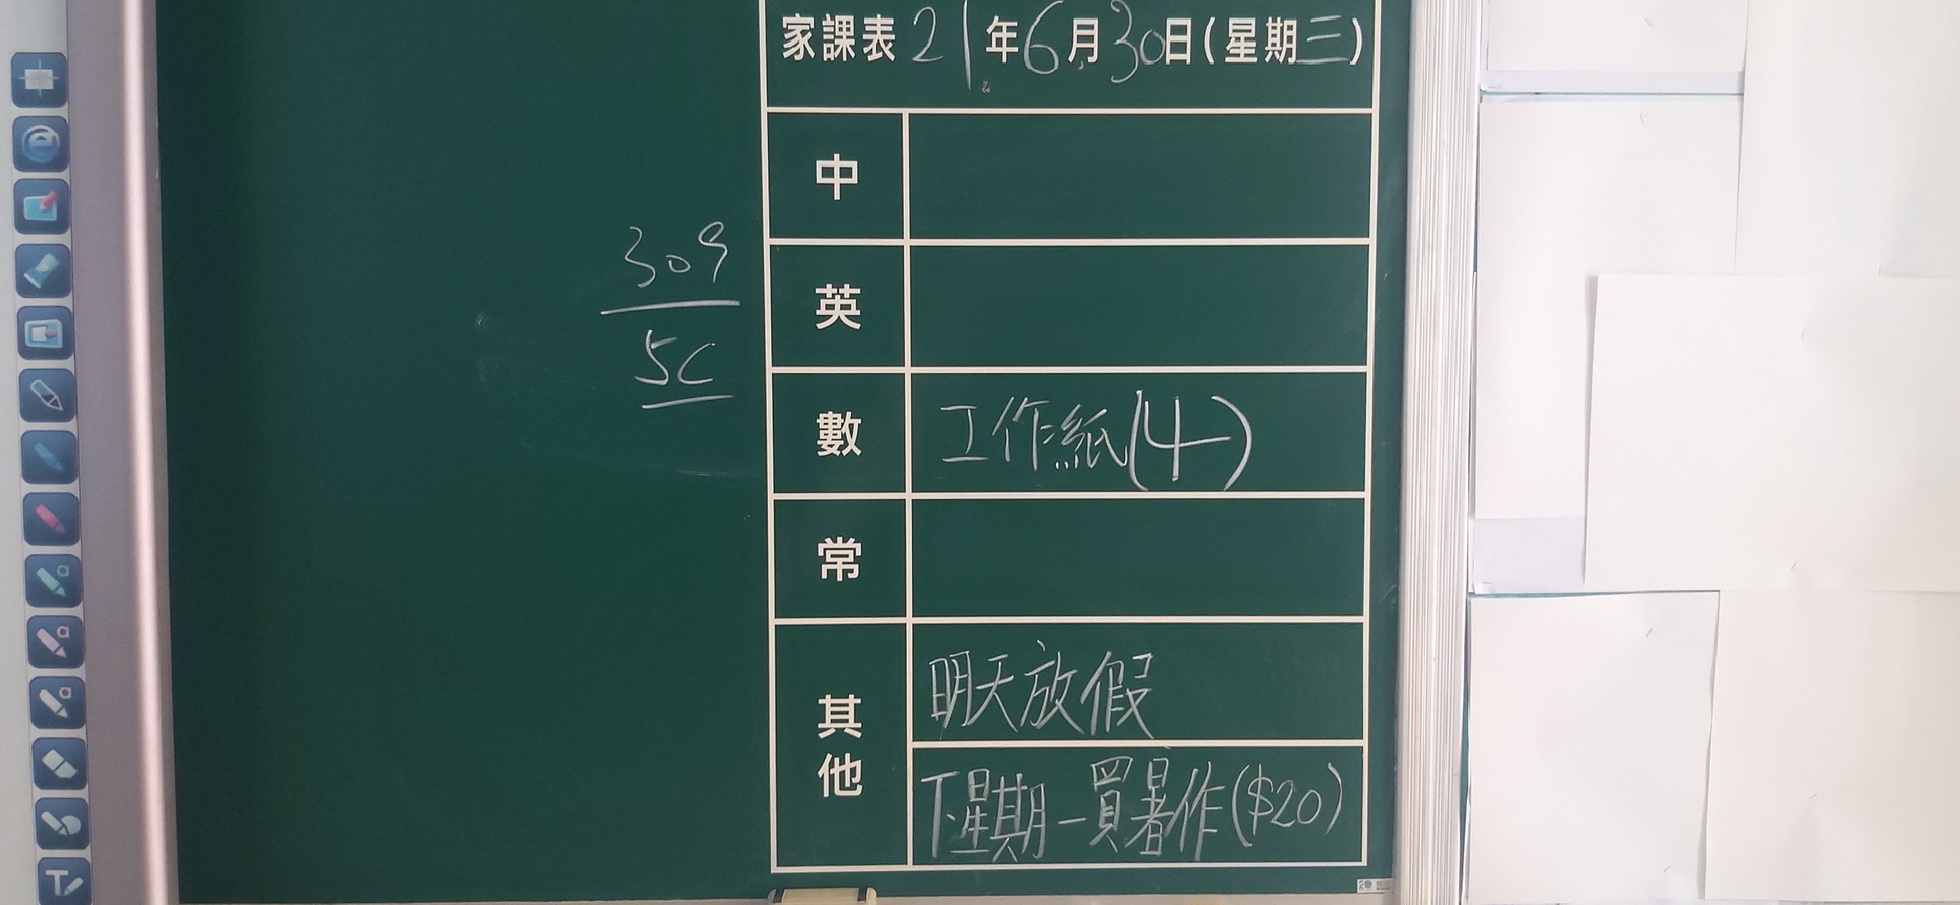 家課表 21年6月30日(星期三)
309
5C
中
英
數 工作紙(4)
常
其他 明天放假
下星期一買暑作($20)